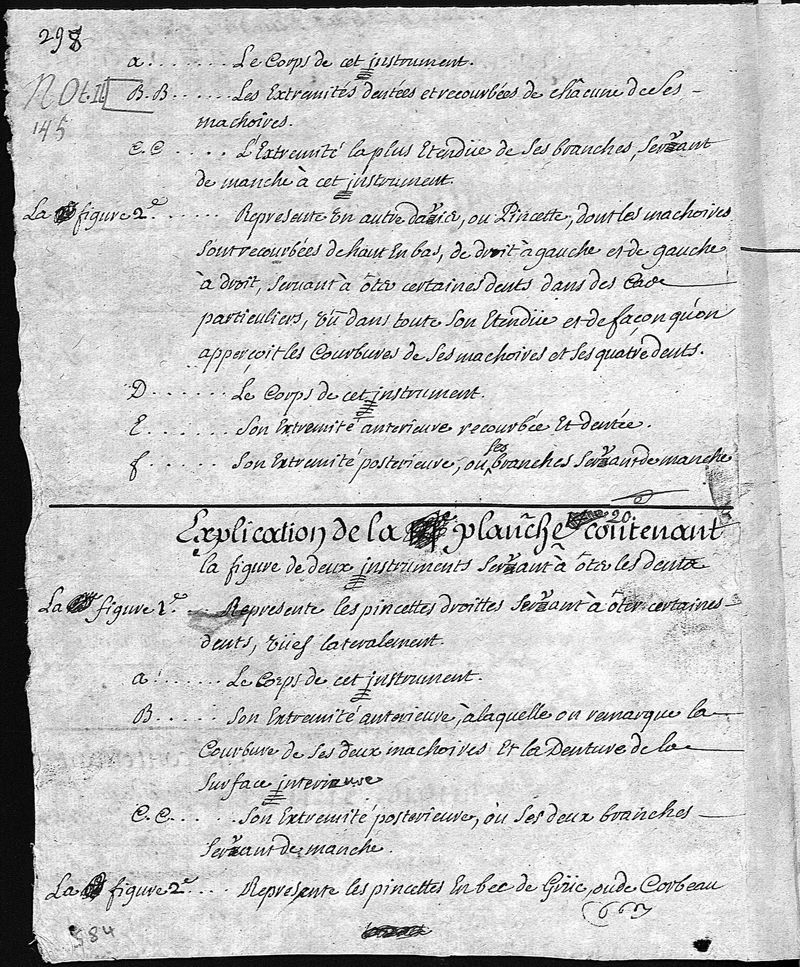 298
a. . . . . . . Le Corps de cet instrument.
N Ot. II B. B . . . . . Les Extremités dentées et recourbées de châcune de Ses
145 machoires.
C. C . . . . . L'Extremité la plus Etendüe de Ses branches, Servant
de manche à cet instrument.
La figure 2e. . . . . . . Represente En autre davier, ou Pincette, dont les machoires
Sont recourbées de haut En bas, de droit à gauche et de gauche
à droit, Servant à ôter certaines dents dans des Cas
particuliers, vû dans toute Son Etendüe et de façon qu'on
apperçoit les Courbures de Ses machoires et Ses quatre dents.
D . . . . . . . Le Corps de cet instrument.
E . . . . . . . Son Extremité anterieure recourbée Et dentée.
f . . . . . . . Son Extremité posterieure, ou ses branches Servant de manche
Explication de la planche 20. contenant
la figure de deux instruments Servant à ôter les dents
La figure 1e. . . Represente les pincettes droittes Servant à ôter certaines
dents, vües lateralement.
a . . . . . . . Le Corps de cet instrument.
B . . . . . . Son Extremité anterieure, à laquelle on remarque la
Courbure de Ses deux machoires Et la Denture de la
Surface interieure
C. C. . . . . . Son Extremité posterieure, ou Ses deux branches
Servant de manche.
La figure 2e . . . . Represente les pincettes En bec de Grüe, ou de Corbeau
667
584